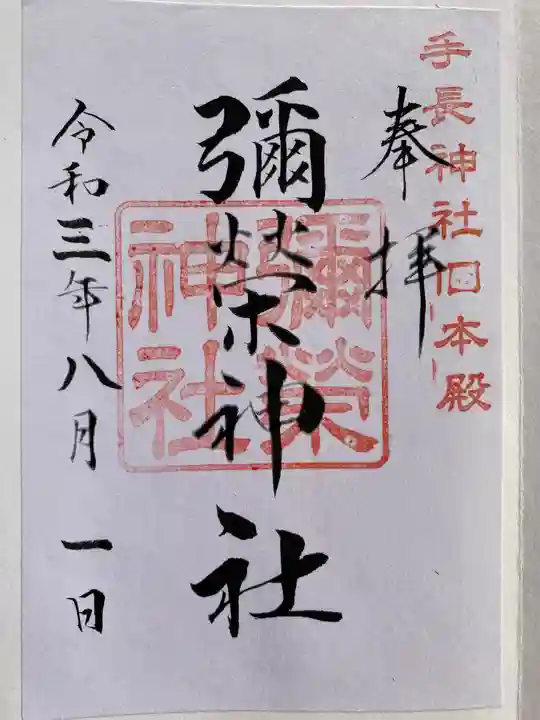 手長神社旧本殿
奉拝
彌榮神社
彌榮
神社
令和三年八月一日